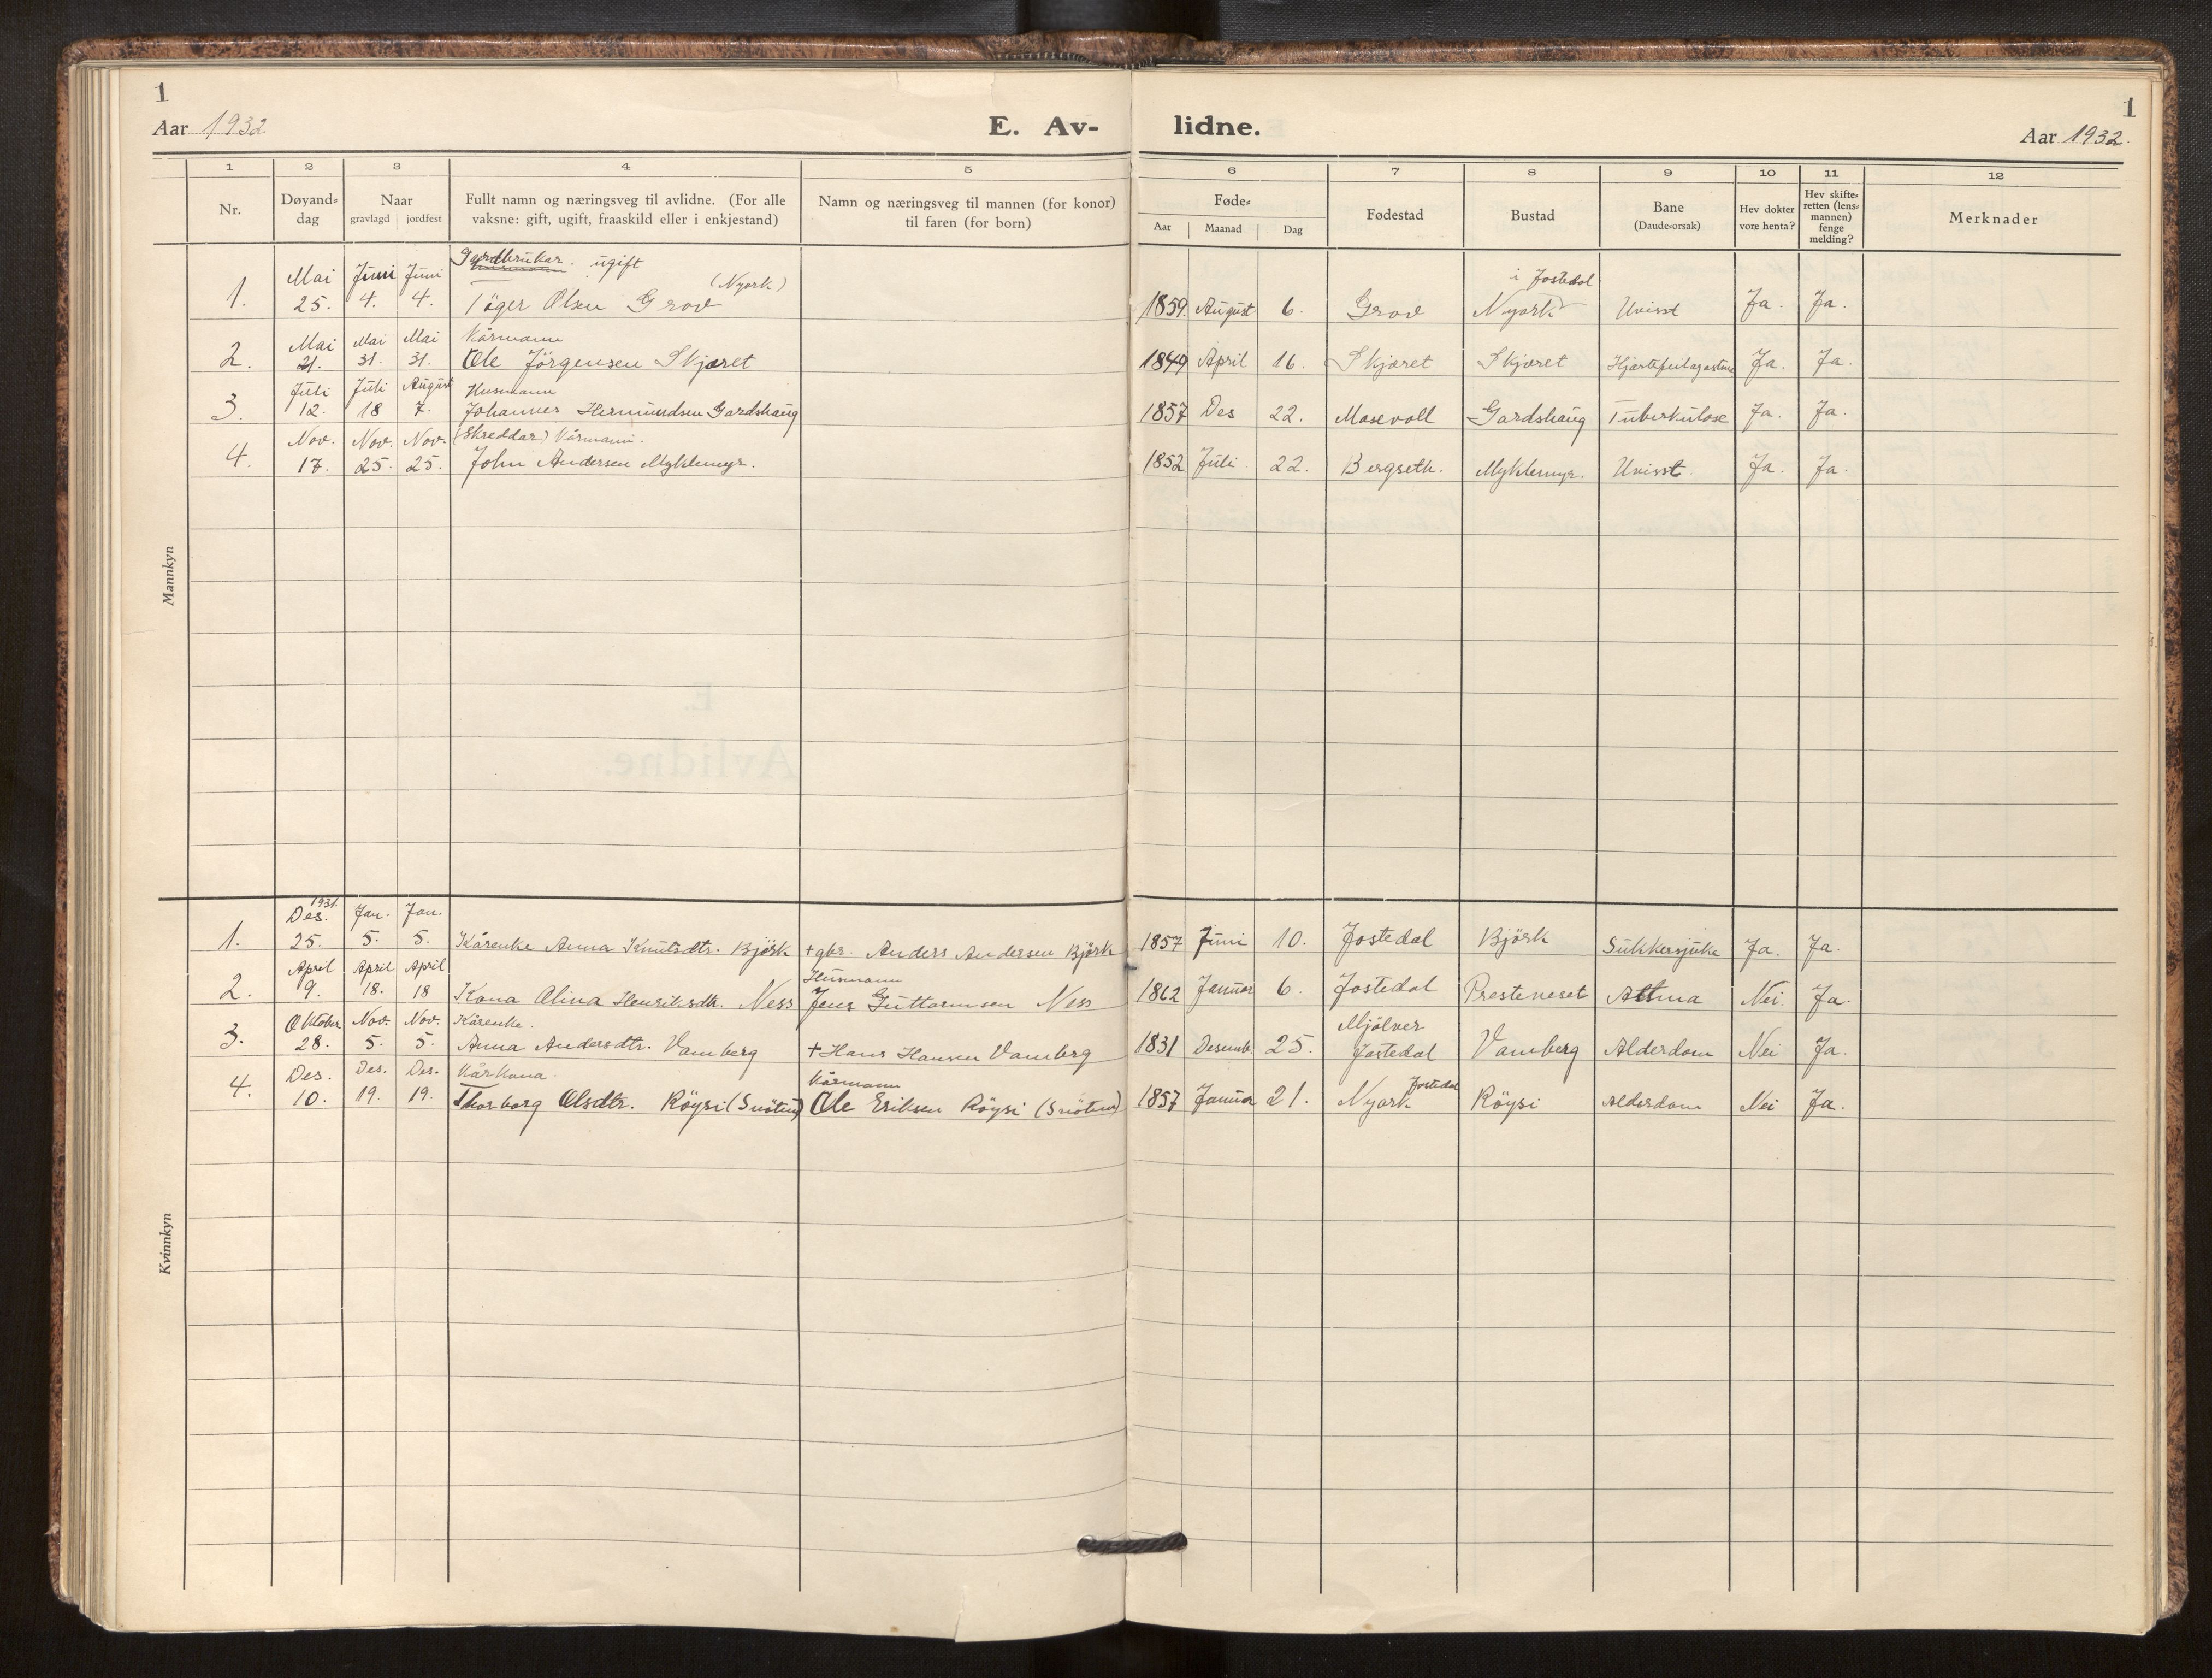 1
Aar 1932
E. Av-
lidne.
1
Aar 1932.
1 2 3 4 5 6 7 8 9 10 11 12
Nr.
Døyand-
dag
Naar
gravlagd | jordfest
Fullt namn og næringsveg til avlidne. (For alle
vaksne: gift, ugift, fraaskild eller i enkjestand)
Namn og næringsveg til mannen (for konor)
til faren (for born)
Føde-
Aar | Maanad | Dag
Fødestad
Bustad
Bane
(Daude-orsak)
Hev dokter
vore henta?
Hev skifte-
retten (lens-
mannen)
fenge
melding?
Merknader
Mannkyn
Mai Juni Juni Gardbrukar. ugift (Nyørk) i Jostedal
1. 25. 4. 4. Tøger Olsen Grov 1859 August 6. Grov Nyørk Uvisst Ja. Ja.
Mai Mai Mai Kårmann
2. 21. 31. 31. Ole Jörgensen Skjæret 1849 April 16. Skjæret Skjæret Ja. Ja.
Juli Juli August Husmann
3. 12. 18 7. Johannes Hermundsen Gardshaug 1857 Des 22. Mosevoll Gardshaug Tuberkulose Ja. Ja.
Nov. Nov. Nov. (Skreddar) Kårmann.
4. 17. 25. 25. John Andersen Myklemyr. 1852 Juli 22. Bergseth. Myklemyr. Uvisst. Ja. Ja.
Kvinnkyn
1931
Des. Jan. Jan.
1. 25. 5. 5. Kårenke Anna Knutsdtr. Björk + gbr. Anders Andersen Björk 1857 Juni 10. Jostedal Björk Sukkersjuke Ja. Ja.
April April April Husmann
2. 9. 18. 18 Kona Olina Henriksdtr. Ness Jens Guttormsen Ness 1862 Januar 6. Jostedal Presteneset Attma Nei. Ja.
Oktober Nov. Nov. Kårenke. Mjölver
3. 28. 5. 5. Anna Andersdtr. Vamberg + Hans Hansen Vamberg 1831 Desemb. 25. Jostedal Vamberg Alderdom Nei Ja.
Des. Des. Des. Kårkona. Kårmann Jostedal
4. 10. 19. 19. Thorborg Olsdtr. Röysi (Snötun) Ole Eriksen Röysi (Snötun) 1857 Januar 21. Nyørk Röysi Alderdom Nei Ja.